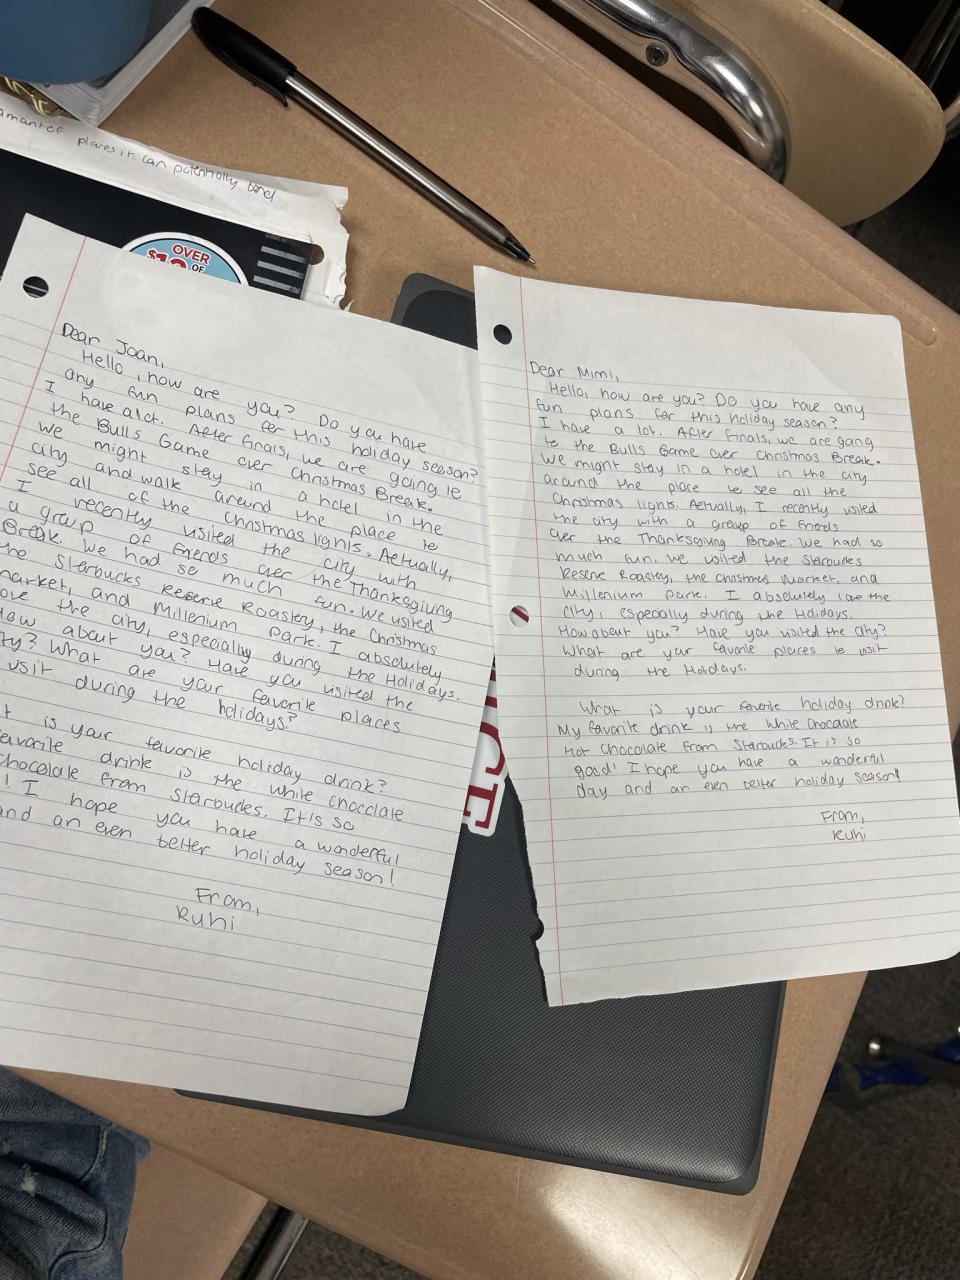 places it can potentially bond
OVER
OF
Dear Joan,
Hello, how are you? Do you have
any fun plans for this holiday season?
I have alot. After finals, we are going to
the Bulls Game over Christmas Break.
we might stay in a hotel in the
city and walk around the place to
see all of the Christmas lights. Actually,
I recently visited the city with
a group of friends over the Thanksgiving
Break. We had so much fun. We visited
the Starbucks Reserve Roastery, the Christmas
market, and Millenium Park. I absolutely
the city, especially during the Holidays.
How about you? Have you visited the
What are your favorite places
visit during the holidays?
is your favorite holiday drink?
favorite drink is the white chocolate
chocolate from Starbucks. It is so
! I hope you have a wonderful
and an even better holiday season!
From,
Ruhi
Dear Mimi,
Hello, how are you? Do you have any
fun plans for this holiday season?
I have a lot. After finals, we are going
to the Bulls Game over Christmas Break.
We might stay in a hotel in the city
around the place to see all the
Christmas lights. Actually, I recently visited
the city with a group of friends
over the Thanksgiving Break. We had so
much fun. We visited the Starbucks
Reserve Roastery, the Christmas Market, and
Millenium Park. I absolutely love the
City, especially during the Holidays.
How about you? Have you visited the city?
What are your favorite places to visit
during the Holidays.
What is your favorite holiday drink?
My favorite drink is the White Chocolate
Hot Chocolate from Starbucks. It is so
good! I hope you have a wonderful
day and an even better holiday season!
From,
Ruhi